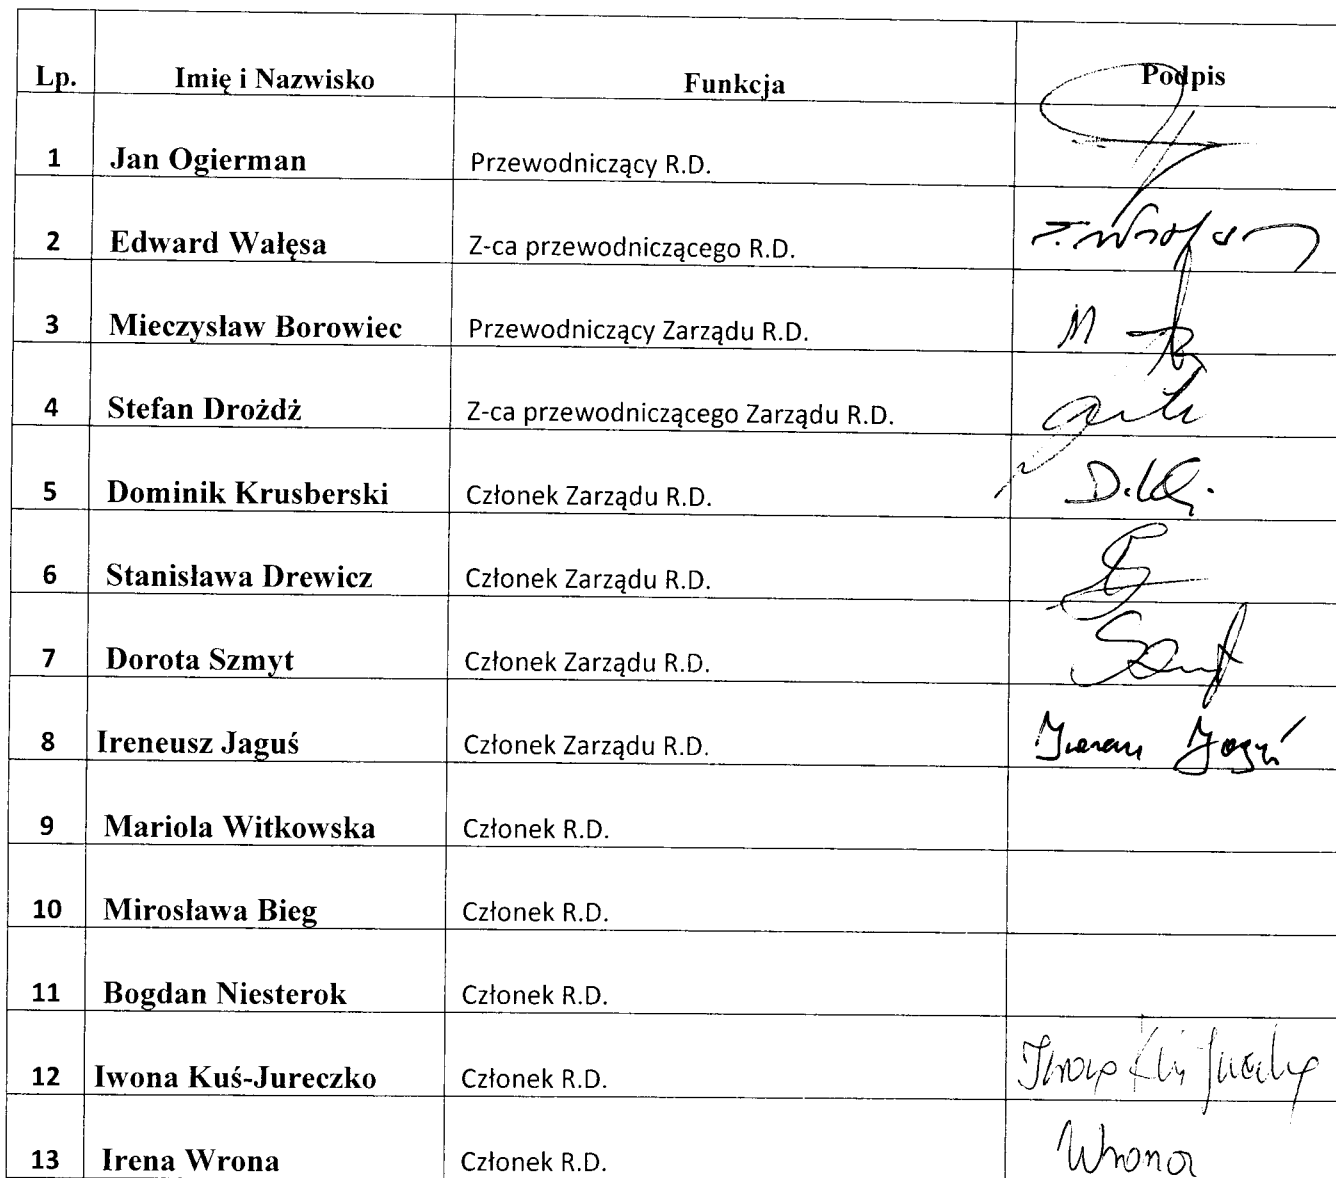 Lp. Imię i Nazwisko Funkcja Podpis
1 Jan Ogierman Przewodniczący R.D.
2 Edward Wałęsa Z-ca przewodniczącego R.D.
3 Mieczysław Borowiec Przewodniczący Zarządu R.D. M
4 Stefan Drożdż Z-ca przewodniczącego Zarządu R.D.
5 Dominik Krusberski Członek Zarządu R.D.
6 Stanisława Drewicz Członek Zarządu R.D.
7 Dorota Szmyt Członek Zarządu R.D.
8 Ireneusz Jaguś Członek Zarządu R.D. Jaguś
9 Mariola Witkowska Członek R.D.
10 Mirosława Bieg Członek R.D.
11 Bogdan Niesterok Członek R.D.
12 Iwona Kuś-Jureczko Członek R.D. Iwona Kuś Jureczko
13 Irena Wrona Członek R.D. Wrona